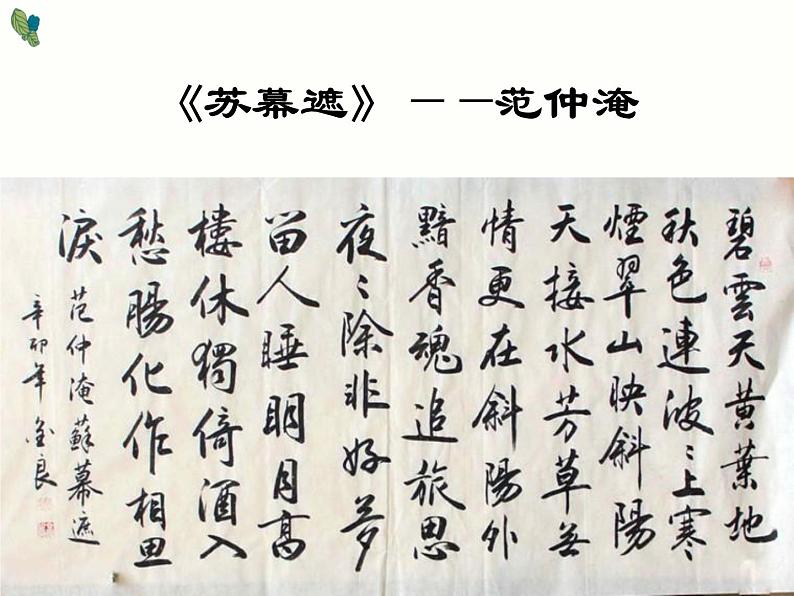 《苏幕遮》 －－范仲淹
碧雲天黃葉地
秋色連波〻上寒
煙翠山映斜陽
天接水芳草無
情更在斜陽外
黯香魂追旅思
夜〻除非好夢
留人睡明月高
樓休獨倚酒入
愁腸化作相思
淚
范仲淹蘇幕遮
辛卯年金良